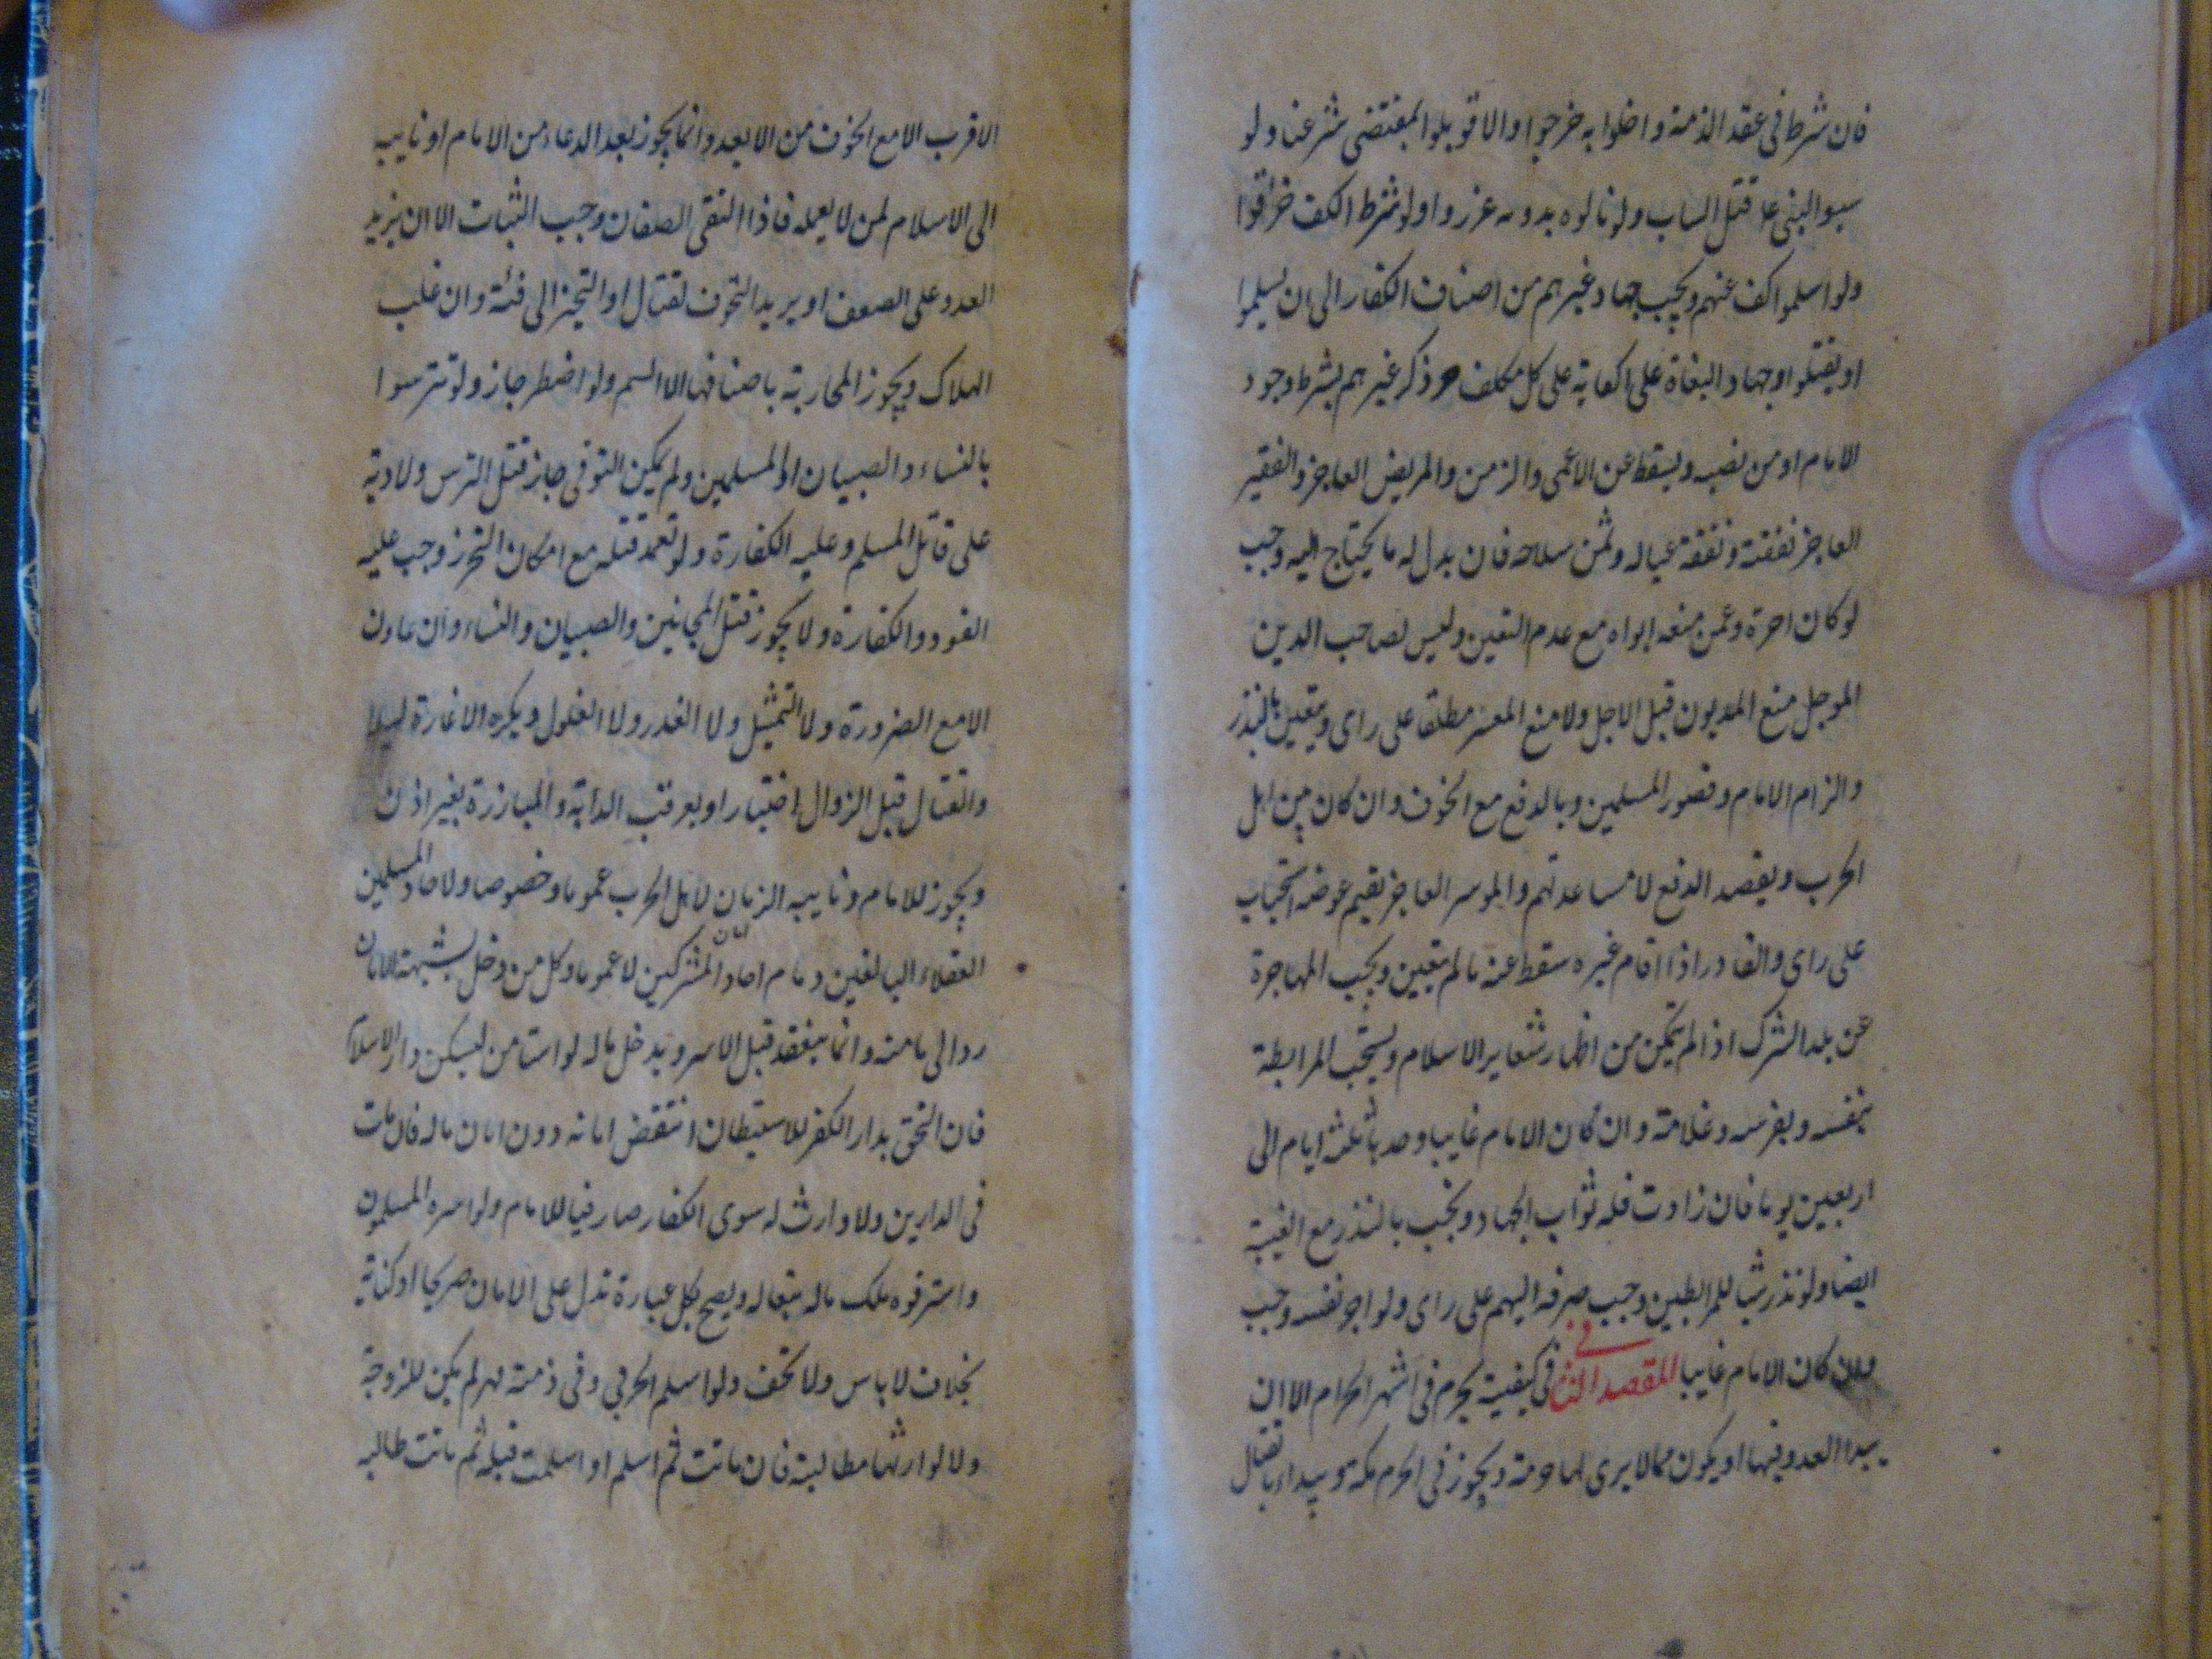 فان شرط فى عقد الذمة واخلوا به خرجوا والا قوبلوا بمقتضى شرعنا ولو
سبوا النبى علا قتل الساب ولو نالوه بدونه عزروا ولو شرط الكف خرقوا
ولو اسلموا كف عنهم ويجب جهاد غيرهم من اصناف الكفار الى ان يسلموا
او يقتلوا وجهاد البغاة على الكفاية على كل مكلف حر ذكر غير هم بشرط وجود
الامام او من نصبه ويسقط عن الاعمى والزمن والمريض العاجز والفقير
العاجز نفقته ونفقة عياله وثمن سلاحه فان بدل له ما يحتاج اليه وجب
لو كان اجرة وعمن منعه ابواه مع عدم التعين وليس لصاحب الدين
الموجل منع المديون قبل الاجل ولا منع المعسر مطلقا على راى ويتعين بالنذر
والزام الامام وقصور المسلمين وبالدفع مع الخوف وان كان بين اهل
الحرب ويقصد الدفع لا مساعدتهم والموسر العاجز يقيم عوضه استحبابا
على راى والقادر اذا اقام غيره سقط عنه ما لم يتعين ويجب المهاجرة
عن بلد الشرك اذا لم يتمكن من اظهار شعاير الاسلام ويستحب المرابطة
بنفسه وبفرسه وغلامه وان كان الامام غايبا وحدها ثلثة ايام الى
اربعين يوما فان زادت فله ثواب الجهاد وتجب بالنذر مع الغيبة
ايضا ولو نذر شيا للمرابطين وجب صرفه اليهم على راى ولو اجر نفسه وجب
وان كان الامام غايبا المقصد الثانى فى كيفيته يحرم فى اشهر الحرام الا ان
يبدا العدو فيها او يكون ممن لا يرى لها حرمة ويجوز فى الحرم مكه ويبداء بقتال
الاقرب الا مع الخوف من الابعد وانما يجوز بعد الدعاء من الامام او نايبه
الى الاسلام لمن لا يعلمه فاذا التقى الصفان وجب الثبات الا ان يزيد
العدو على الضعف او يريد التحرف لقتال او التحيز الى فئة وان غلب
الهلاك ويجوز المحاربة باصنافها الا السم ولو اضطر جاز ولو تترسوا
بالنساء والصبيان او المسلمين ولم يمكن التوقى جاز قتل الترس ولا دية
على قاتل المسلم وعليه الكفارة ولو تعمد قتله مع امكان التحرز وجب عليه
القود والكفارة ولا يجوز قتل المجانين والصبيان والنساء وان عاون
الا مع الضرورة ولا التمثيل ولا الغدر ولا الغلول ويكره الاغارة ليلا
والقتال قبل الزوال اختيارا ويعرقب الدابة والمبارزة بغير اذن
ويجوز للامام ونايبه الزمان لاهل الحرب عموما وخصوصا ولاحاد المسلمين
العقلاء البالغين ذمام امان احاد المشركين لا عموما وكل من دخل بشبهة الامان
رد الى مامنه وانما ينعقد قبل الاسر ويدخل ماله لو استامن ليسكن دار الاسلام
فان التحق بدار الكفر للاستيطان انتقض امانه دون امان ماله فان مات
فى الدارين ولا وارث له سوى الكفار صار فيا للامام ولو اسره المسلمون
واسترقوه ملك ماله تبعا له ويصح بكل عبارة تدل على الامان صريحا او كناية
بخلاف لا باس ولا تخف ولو اسلم الحربي وفى ذمته مهر لم يكن للزوجة
ولا لوارثها مطالبة فان ماتت ثم اسلم او اسلمت قبله ثم ماتت طالبه